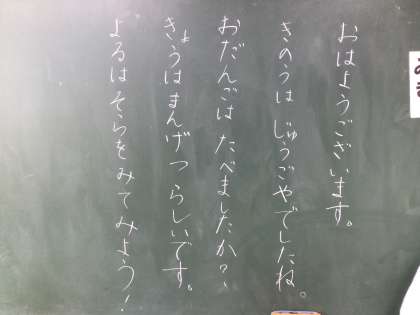 おはようございます。
きのうは じゅうごやでしたね。
おだんごは たべましたか?
きょうは まんげつ らしいです。
よるは そらを みてみよう!